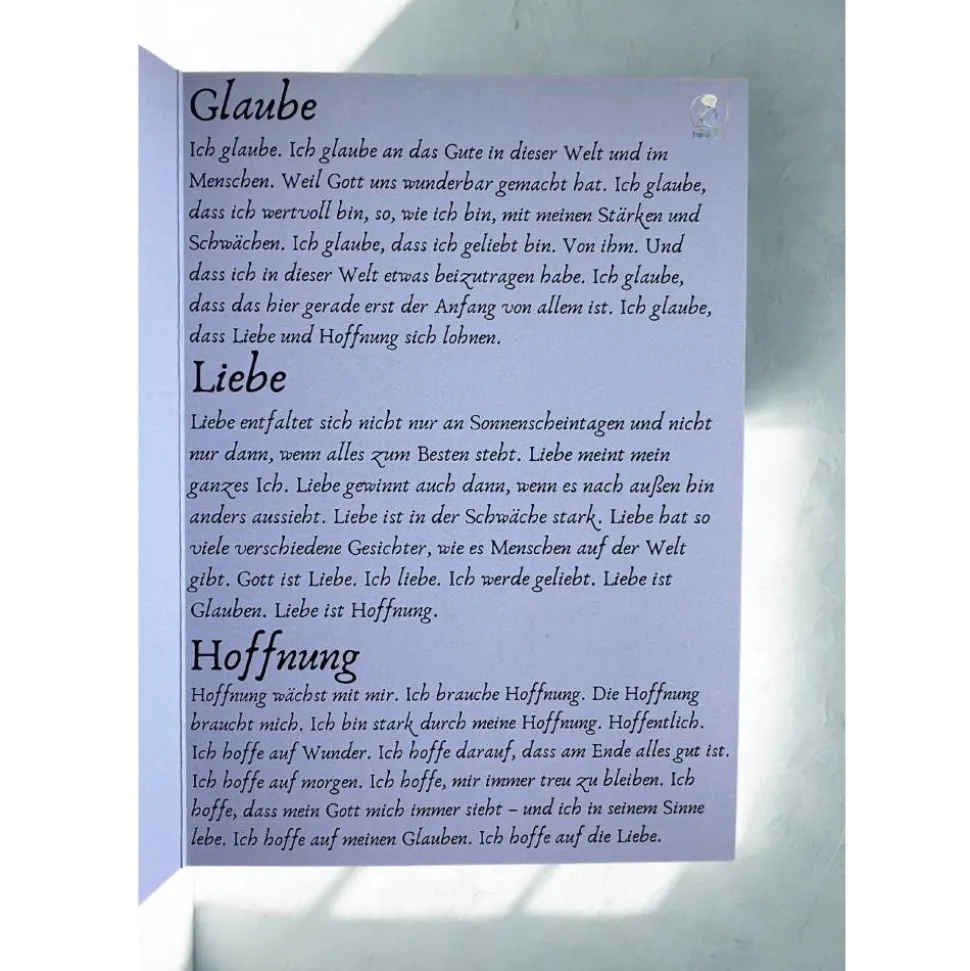 Glaube
Ich glaube. Ich glaube an das Gute in dieser Welt und im
Menschen. Weil Gott uns wunderbar gemacht hat. Ich glaube,
dass ich wertvoll bin, so, wie ich bin, mit meinen Stärken und
Schwächen. Ich glaube, dass ich geliebt bin. Von ihm. Und
dass ich in dieser Welt etwas beizutragen habe. Ich glaube,
dass das hier gerade erst der Anfang von allem ist. Ich glaube,
dass Liebe und Hoffnung sich lohnen.
Liebe
Liebe entfaltet sich nicht nur an Sonnenscheintagen und nicht
nur dann, wenn alles zum Besten steht. Liebe meint mein
ganzes Ich. Liebe gewinnt auch dann, wenn es nach außen hin
anders aussieht. Liebe ist in der Schwäche stark. Liebe hat so
viele verschiedene Gesichter, wie es Menschen auf der Welt
gibt. Gott ist Liebe. Ich liebe. Ich werde geliebt. Liebe ist
Glauben. Liebe ist Hoffnung.
Hoffnung
Hoffnung wächst mit mir. Ich brauche Hoffnung. Die Hoffnung
braucht mich. Ich bin stark durch meine Hoffnung. Hoffentlich.
Ich hoffe auf Wunder. Ich hoffe darauf, dass am Ende alles gut ist.
Ich hoffe auf morgen. Ich hoffe, mir immer treu zu bleiben. Ich
hoffe, dass mein Gott mich immer sieht – und ich in seinem Sinne
lebe. Ich hoffe auf meinen Glauben. Ich hoffe auf die Liebe.